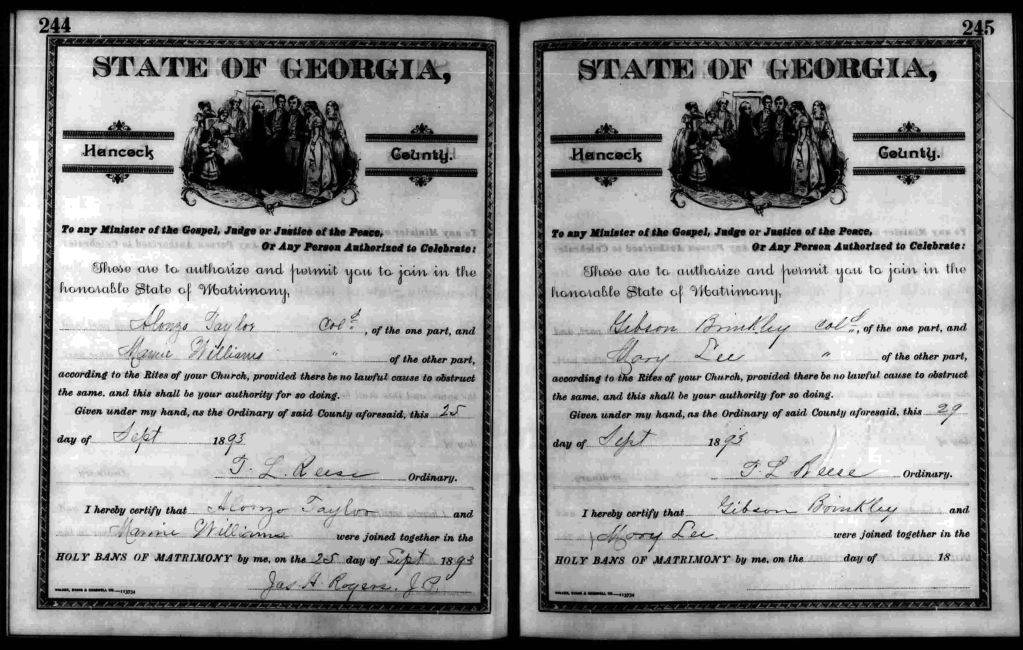 244
STATE OF GEORGIA,
Hancock County.
To any Minister of the Gospel, Judge or Justice of the Peace,
Or Any Person Authorized to Celebrate:
These are to authorize and permit you to join in the
honorable State of Matrimony,
Alonzo Taylor Col^d, of the one part, and
Mamie Williams " of the other part,
according to the Rites of your Church, provided there be no lawful cause to obstruct
the same, and this shall be your authority for so doing.
Given under my hand, as the Ordinary of said County aforesaid, this 25
day of Sept 1893
T. L. Reese Ordinary.
I hereby certify that Alonzo Taylor and
Mamie Williams were joined together in the
HOLY BANS OF MATRIMONY by me, on the 25 day of Sept 1893
Jas. H. Rogers, J.P.
245
STATE OF GEORGIA,
Hancock County.
To any Minister of the Gospel, Judge or Justice of the Peace,
Or Any Person Authorized to Celebrate:
These are to authorize and permit you to join in the
honorable State of Matrimony,
Gibson Brinkley Col^d, of the one part, and
Mary Lee " of the other part,
according to the Rites of your Church, provided there be no lawful cause to obstruct
the same, and this shall be your authority for so doing.
Given under my hand, as the Ordinary of said County aforesaid, this 29
day of Sept 1893
T. L. Reese Ordinary.
I hereby certify that Gibson Brinkley and
Mary Lee. were joined together in the
HOLY BANS OF MATRIMONY by me, on the day of 18